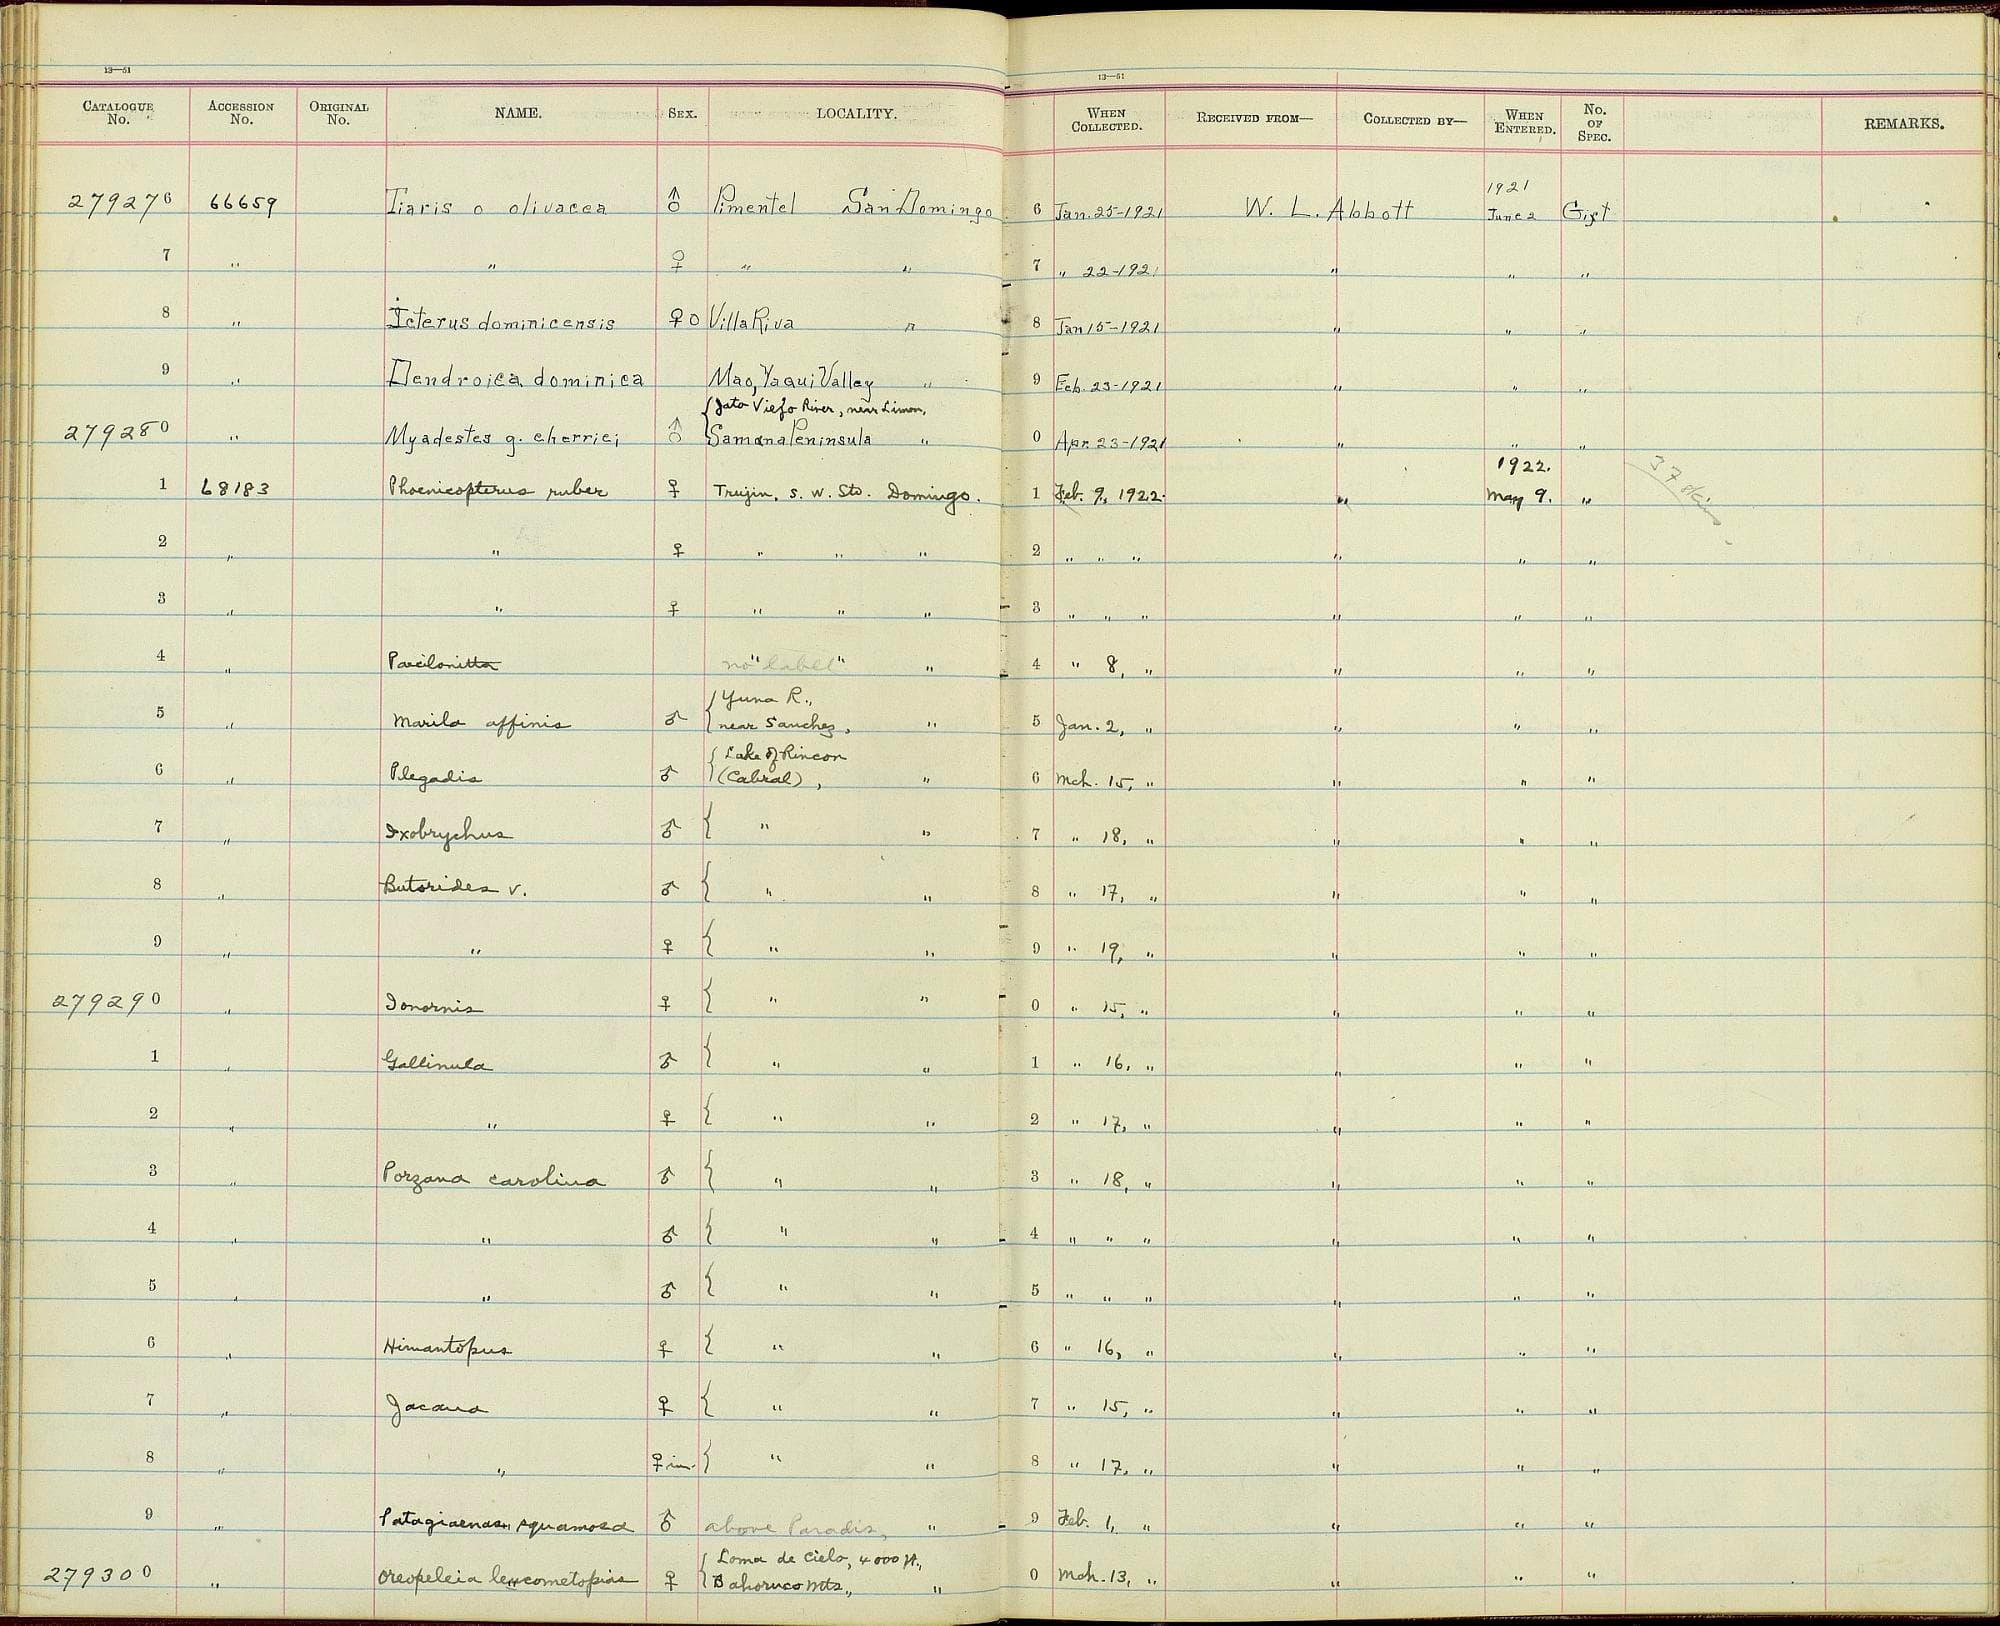 13—51
13—51
CATALOGUE No. ACCESSION No. ORIGINAL No. NAME. SEX. LOCALITY. WHEN COLLECTED. RECEIVED FROM— COLLECTED BY— WHEN ENTERED. No. OF SPEC. REMARKS.
1921
279276 66659 Tiaris o olivacea ♂ Pimentel San Domingo 6 Jan. 25-1921 W. L. Abbott June 2 Gift
7 " " ♀ " " 7 " 22-1921 " " "
8 " Icterus dominicensis ♀ o Villa Riva " 8 Jan 15-1921 " " "
9 " Dendroica dominica Mao, Yaqui Valley " 9 Feb. 23-1921 " " "
{Jato Viejo River, near Limon,
279280 " Myadestes g. cherriei ♂ Samana Peninsula " 0 Apr. 23-1921 " " "
1922.
1 68183 Phoenicopterus ruber ♀ Trujin, S. W. Sto. Domingo. 1 Feb. 9, 1922. " May 9. " 37 skins
2 " " ♀ " " " 2 " " " " " "
3 " " ♀ " " " 3 " " " " " "
4 " Paecilonitta no "label" " 4 " 8, " " " "
{Yuna R.,
5 " Marila affinis ♂ near Sanchez, " 5 Jan. 2, " " " "
{Lake of Rincon
6 " Plegadis ♂ (Cabral), " 6 Mch. 15, " " " "
7 " Ixobrychus ♂ { " " 7 " 18, " " " "
8 " Butorides v. ♂ { " " 8 " 17, " " " "
9 " " ♀ { " " 9 " 19, " " " "
279290 " Ionornis ♀ { " " 0 " 15, " " " "
1 " Gallinula ♂ { " " 1 " 16, " " " "
2 " " ♀ { " " 2 " 17, " " " "
3 " Porzana carolina ♂ { " " 3 " 18, " " " "
4 " " ♂ { " " 4 " " " " " "
5 " " ♂ { " " 5 " " " " " "
6 " Himantopus ♀ { " " 6 " 16, " " " "
7 " Jacana ♀ { " " 7 " 15, " " " "
8 " " ♀ im. { " " 8 " 17, " " " "
9 " Patagiaenas squamosa ♂ above Paradis, " 9 Feb. 1, " " " "
{Loma de Cielo, 4000 ft.,
279300 " Oreopeleia leucometopias ♀ Bahoruco Mts., " 0 Mch. 13, " " " "